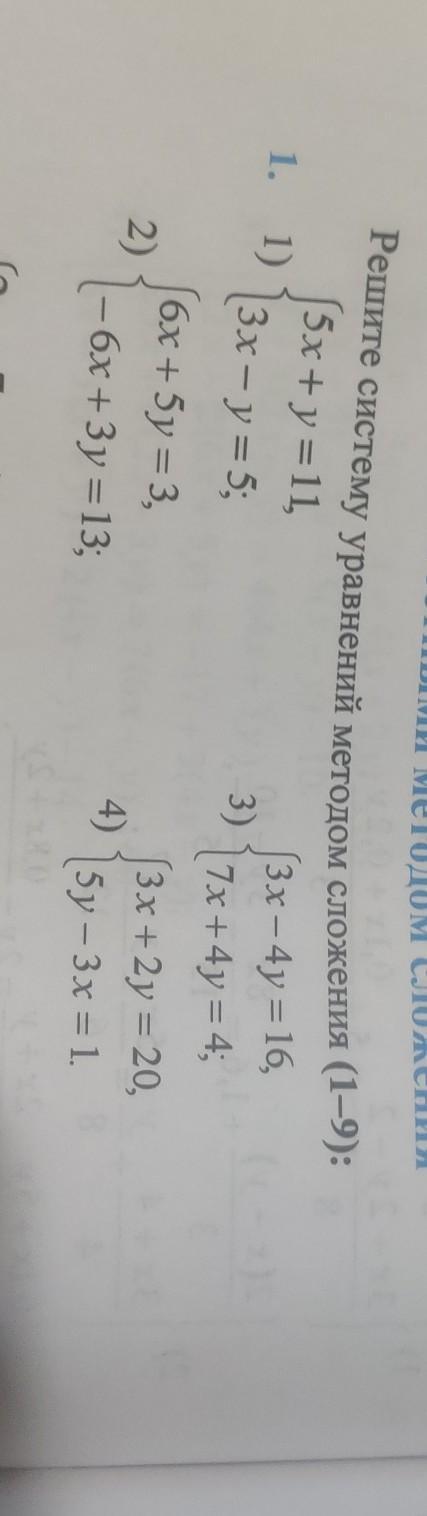 МЕТОДОМ СЛОЖЕНИЯ
Решите систему уравнений методом сложения (1–9):
1. 1) {5x + y = 11,
3x – y = 5;
2) {6x + 5y = 3,
– 6x + 3y = 13;
3) {3x – 4y = 16,
7x + 4y = 4;
4) {3x + 2y = 20,
5y – 3x = 1.